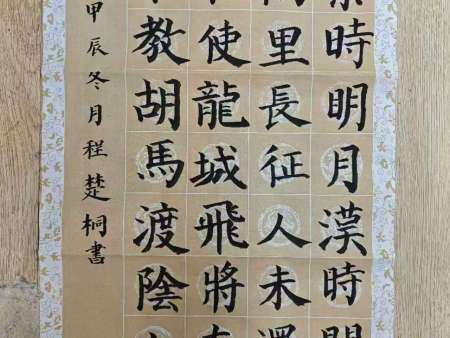 時明月漢時
里長征人未還
使龍城飛將
教胡馬渡陰
甲辰冬月程楚桐書